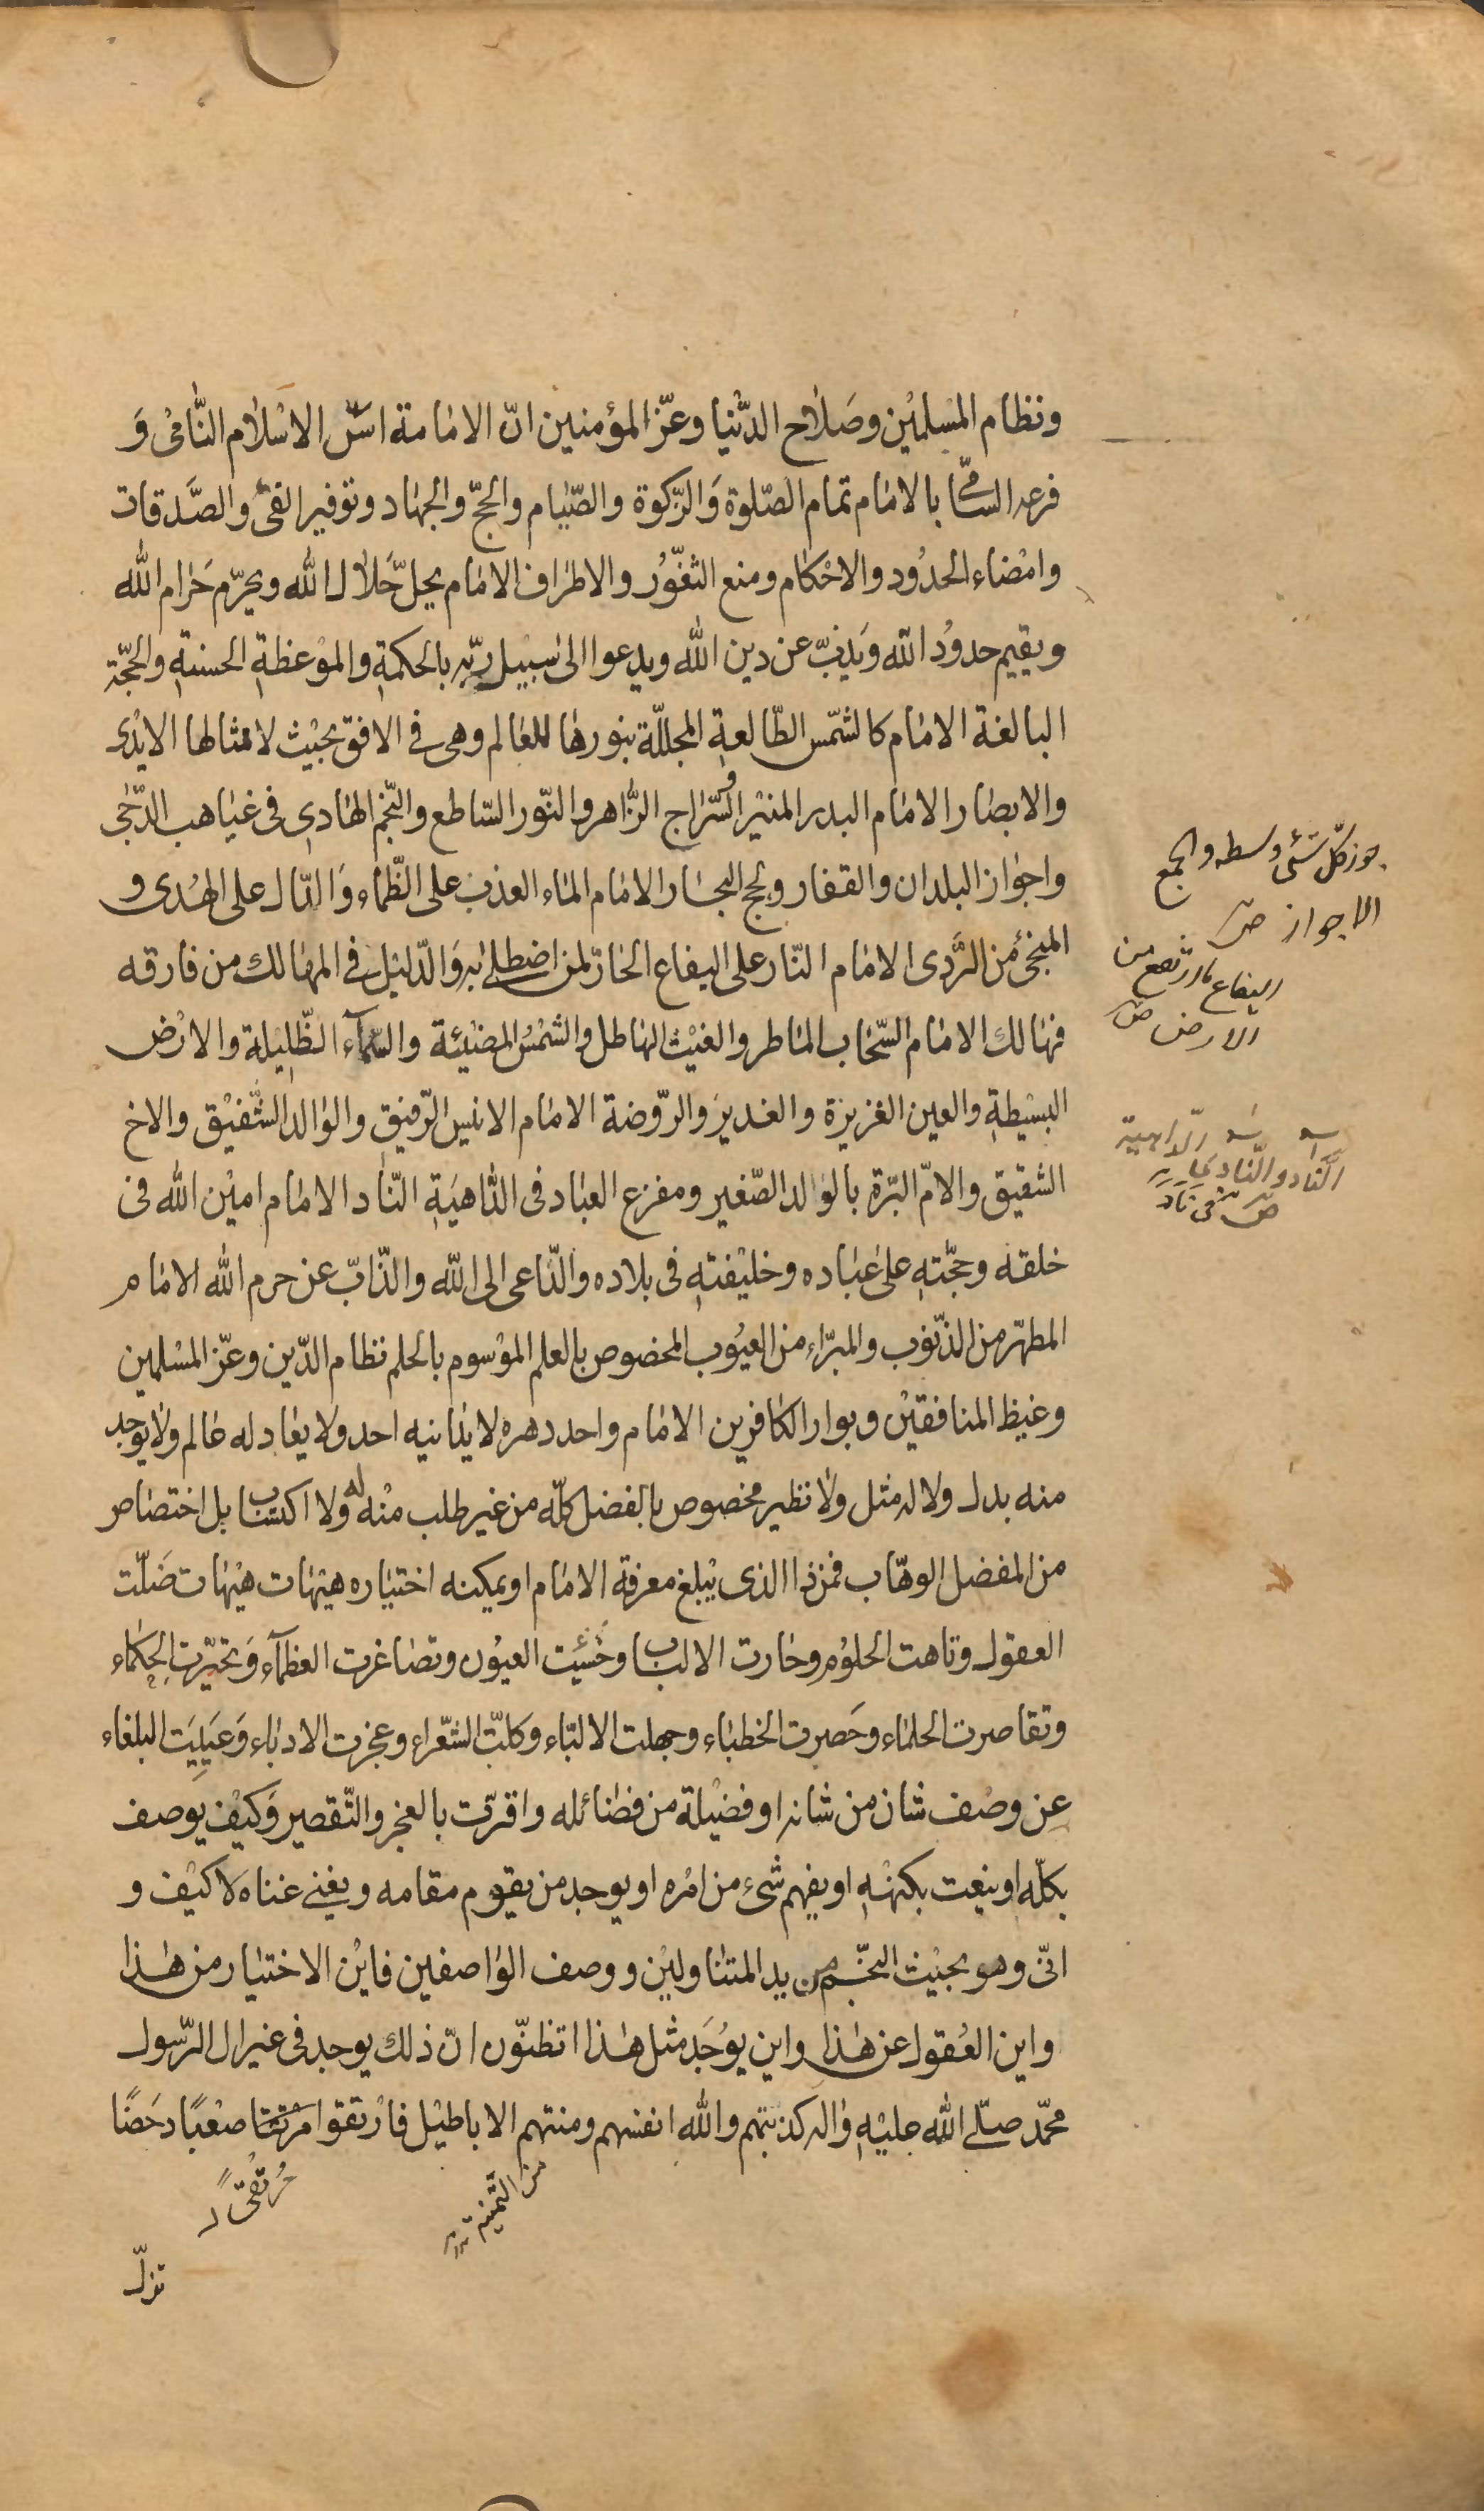 ونظام المسلمين وصلاح الدنيا وعزّ المؤمنين انّ الامامة اسّ الاسلام النّامى وَ
فرعه السّامى بالامام تمام الصّلوة وَالزّكوة والصّيام والحجّ والجهاد وتوفير الفئ والصَّدقات
وامضاء الحدُود والاحكام ومنع الثغّوُر والاطراف الامام يحلّ حَلال الله ويحرّم حَرام الله
ويقيم حدودُ الله وَيذبّ عن دين الله ويدعوا الى سبيل ربّه بالحكمةِ والموْعظةِ الحسنةِ والحجّة
البالغة الامام كالشمّس الطّالعةِ المجللّة بنورها للعالم وهى فى الافق بحيْث لا ممثالها الايْدى
والابصار الامام البدر المنيْر والسّراج الزّاهر والنّور السّاطع والنّجم الهادى فى غياهب الدّجى
واجواز البلدان والقفار ولجج البحار الامام الماء العذب على الظّماء وَالدّال على الهُدى و
المنجئ من الرَّدى الامام النّار على اليفاع الحارّ لمن اصطلى به وَالدّليْل فى المهالك من فارقه
فهالك الامام السّحاب الماطر والغيْث الهاطل والشمْسُ المضيْئة والسّمآء الظّلِيْلة والارْض
البسيْطةِ والعين الغزيزة والغديرَ والرّوضة الامام الانيس الرّفيق والوالد الشّفيْق والاخ
الشقيق والامّ البرّة بالولد الصّغير ومفزع العباد فى الدّاهيَةِ النّاد الامام اميْن الله فى
خلقه وحجّتهِ على عباده وخليْفتهِ فى بلاده والدّاعى الى الله والذّابّ عن حرم الله الامام
المطهرّ من الذّنوب والمبرّاء من العيُوب المخصوص بالعلم الموْسوم بالحلم نظام الدّين وعزّ المسْلمين
وغيظ المنافقيْن وبوار الكافرين الامام واحد دهره لا يدانيه احد ولا يعادله عالم ولا يوجد
منه بدل ولا له مثل ولا نظير مخصوص بالفضل كلّه من غير طلب منْه له ولا اكتساب بل اختصاص
من المفضل الوهّاب فمن ذا الذى يبْلغ معرفة الامام او يمكينه اختياره هيْهات هيْهات ضَلّت
العقول وتاهت الحلوُم وحارت الالباب وخسْئت العيوُن وتصاغرت العظمآء وَتحيّرت الحكماء
وتقاصرت الحلماء وحَصرت الخطباء وجهلت الالبّاء وَكلتّ الشعّراء وعجزت الادباء وَعَيِيَت البلغاء
عن وصْف شان من شانه او فضيْلة من فضائله واقرّت بالعجز والتّقصير وَكيْف يوصف
بكلّه او ينعت بكنهْهِ او يفهم شئ من امْره او يوجد من يقوم مقامه ويغنى غناه لاَ كيْف و
انّى وهو بحيْث النّجم من يد المتناوليْن ووصف الواصفين فايْن الاختيار من هٰذا
واين العُقول عن هٰذا واين يوُجَد مثل هٰذا اتظنّون انّ ذلك يوجد فى غير ال الرّسول
محمّد صلّى الله عليْهِ واله كذبتهم والله انفسهم ومنتهم الاباطيْل فارْتقوا مرتقا صعْبًا دحَضًا
مُرْتَقىً
من التمنية
تزلّ
جوز كلّ شئ وسطه والجمع
الاجواز ص
اليفاع ما ارتفع من
الارض ص
النّاد والنّادى الدّاهية
ص